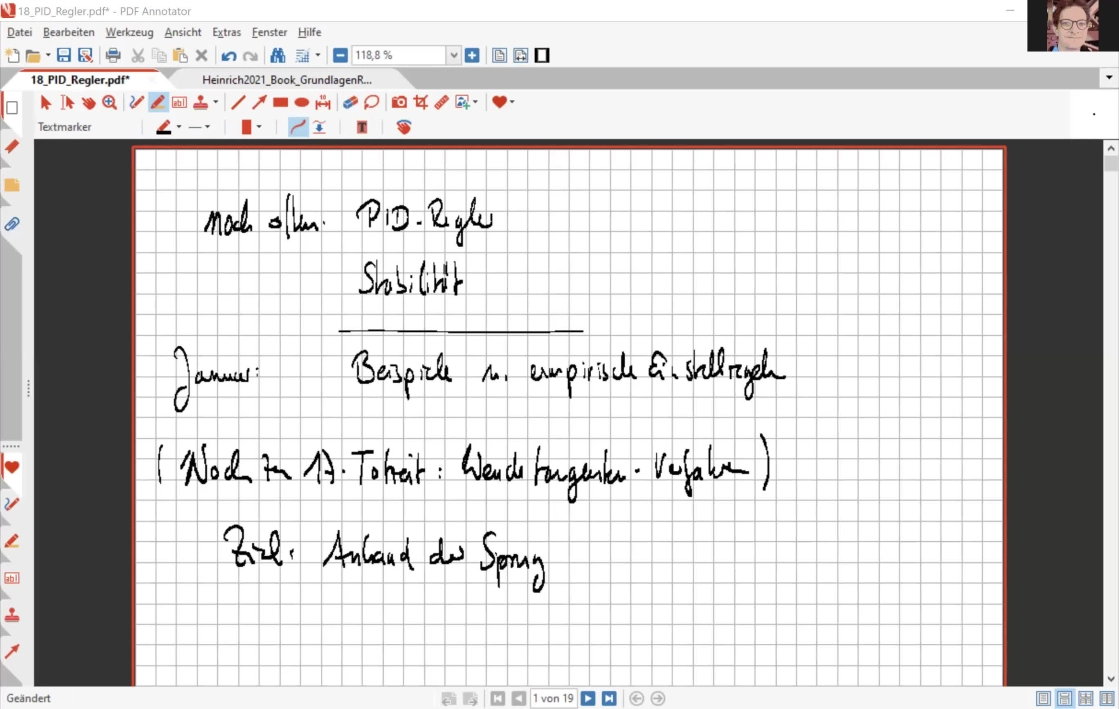 18_PID_Regler.pdf* - PDF Annotator
Datei Bearbeiten Werkzeug Ansicht Extras Fenster Hilfe
118,8 %
18_PID_Regler.pdf* Heinrich2021_Book_GrundlagenR...
Textmarker
noch offen: PID-Regler
Stabilität
Januar: Beispiele u. empirische Einstellregeln
(Noch zu 17. Totzeit: Wendetangenten-Verfahren)
Ziel: Anhand der Sprung
Geändert
1 von 19